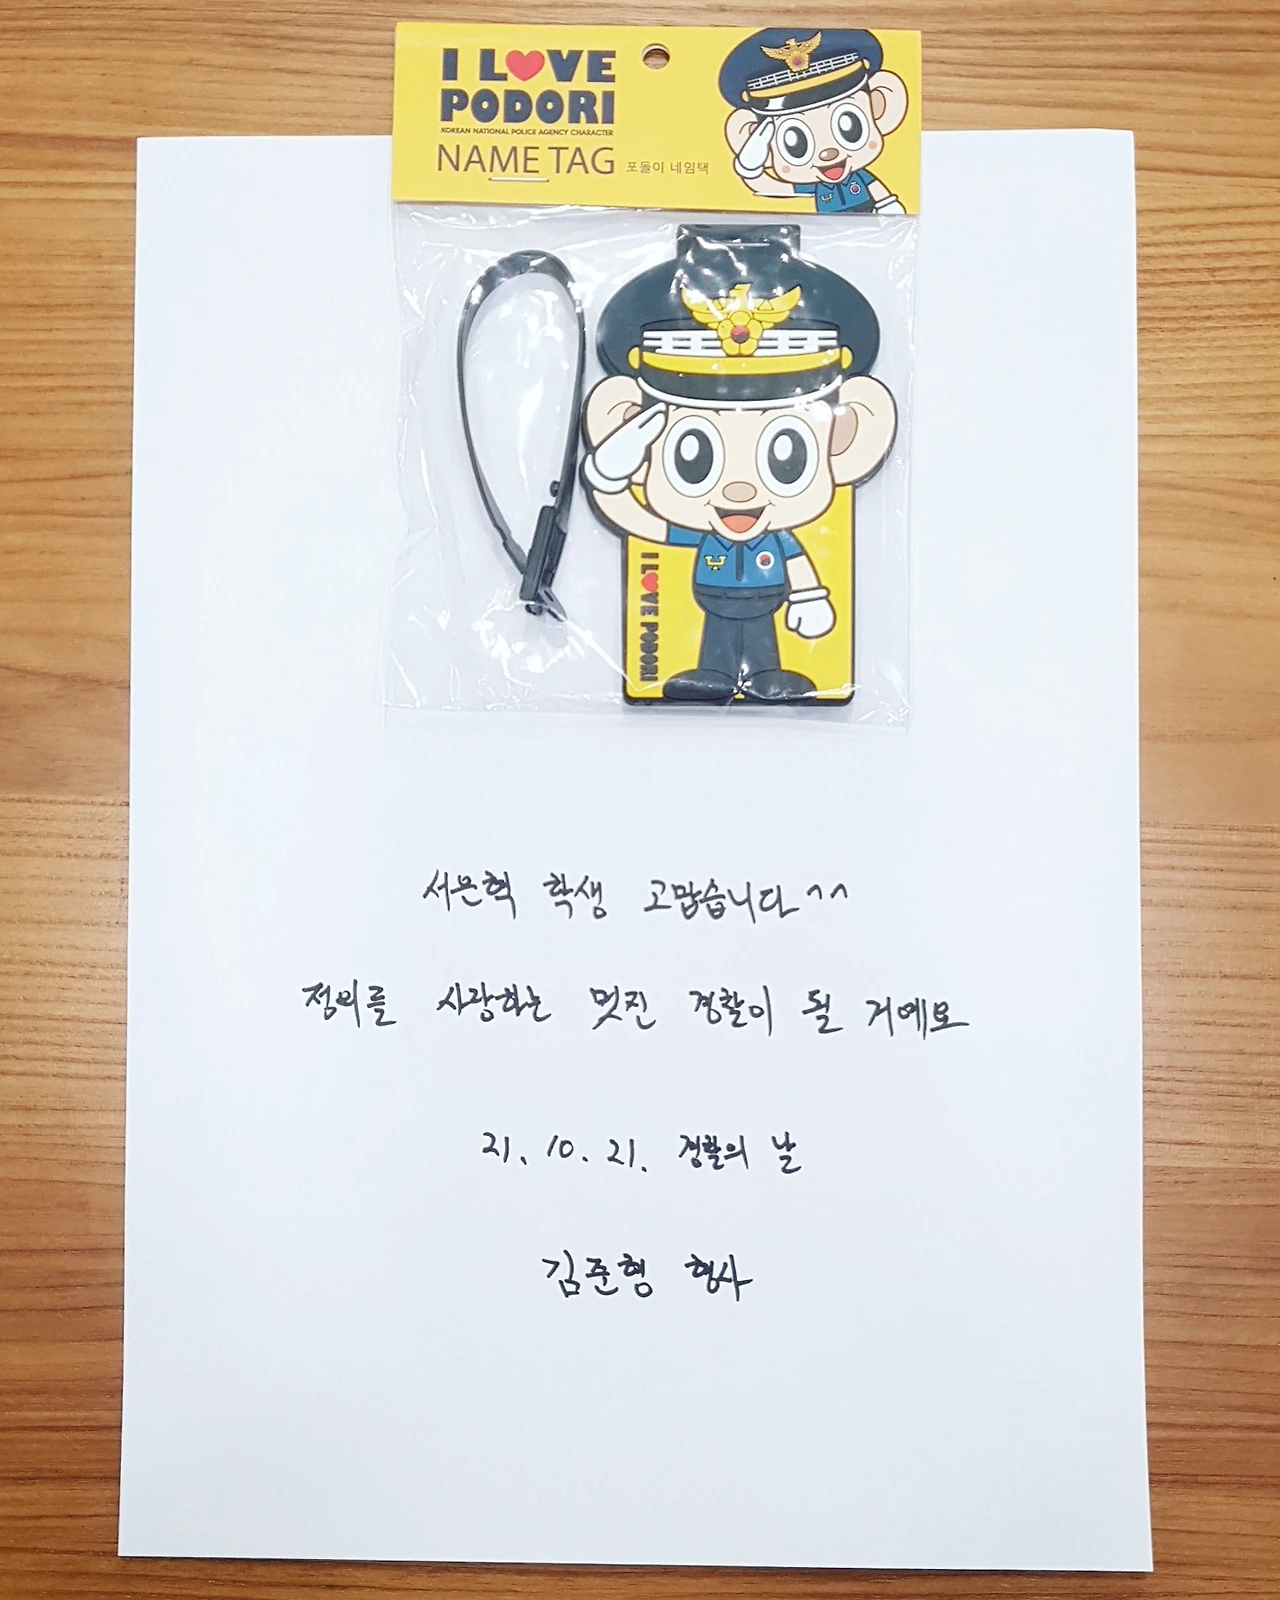 I L♥VE
PODORI
KOREAN NATIONAL POLICE AGENCY CHARACTER
NAME TAG 포돌이 네임택
I L♥VE PODORI
서은혁 학생 고맙습니다^^
정의를 사랑하는 멋진 경찰이 될 거예요
21. 10. 21. 경찰의 날
김준형 형사